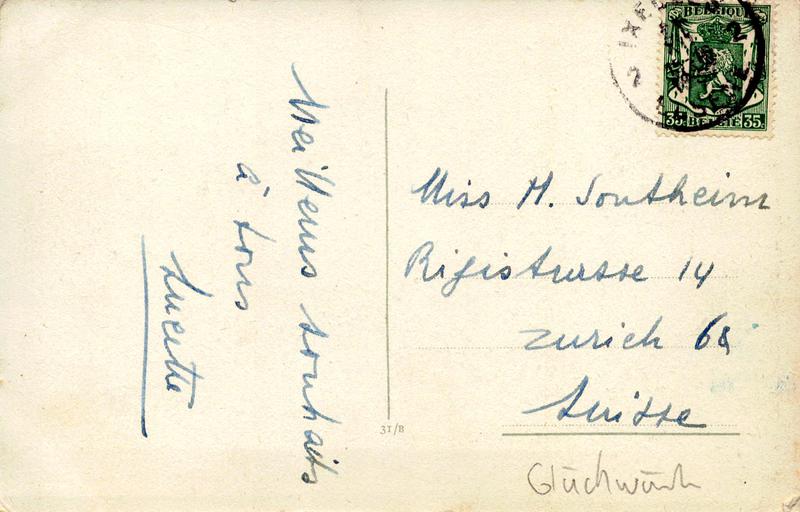 Meilleurs souhaits
à tous
Lucette
BELGIQUE
35c BELGIE 35c
Miss M. Southeim
Rigistrasse 14
Zurich 6
Suisse
31/B